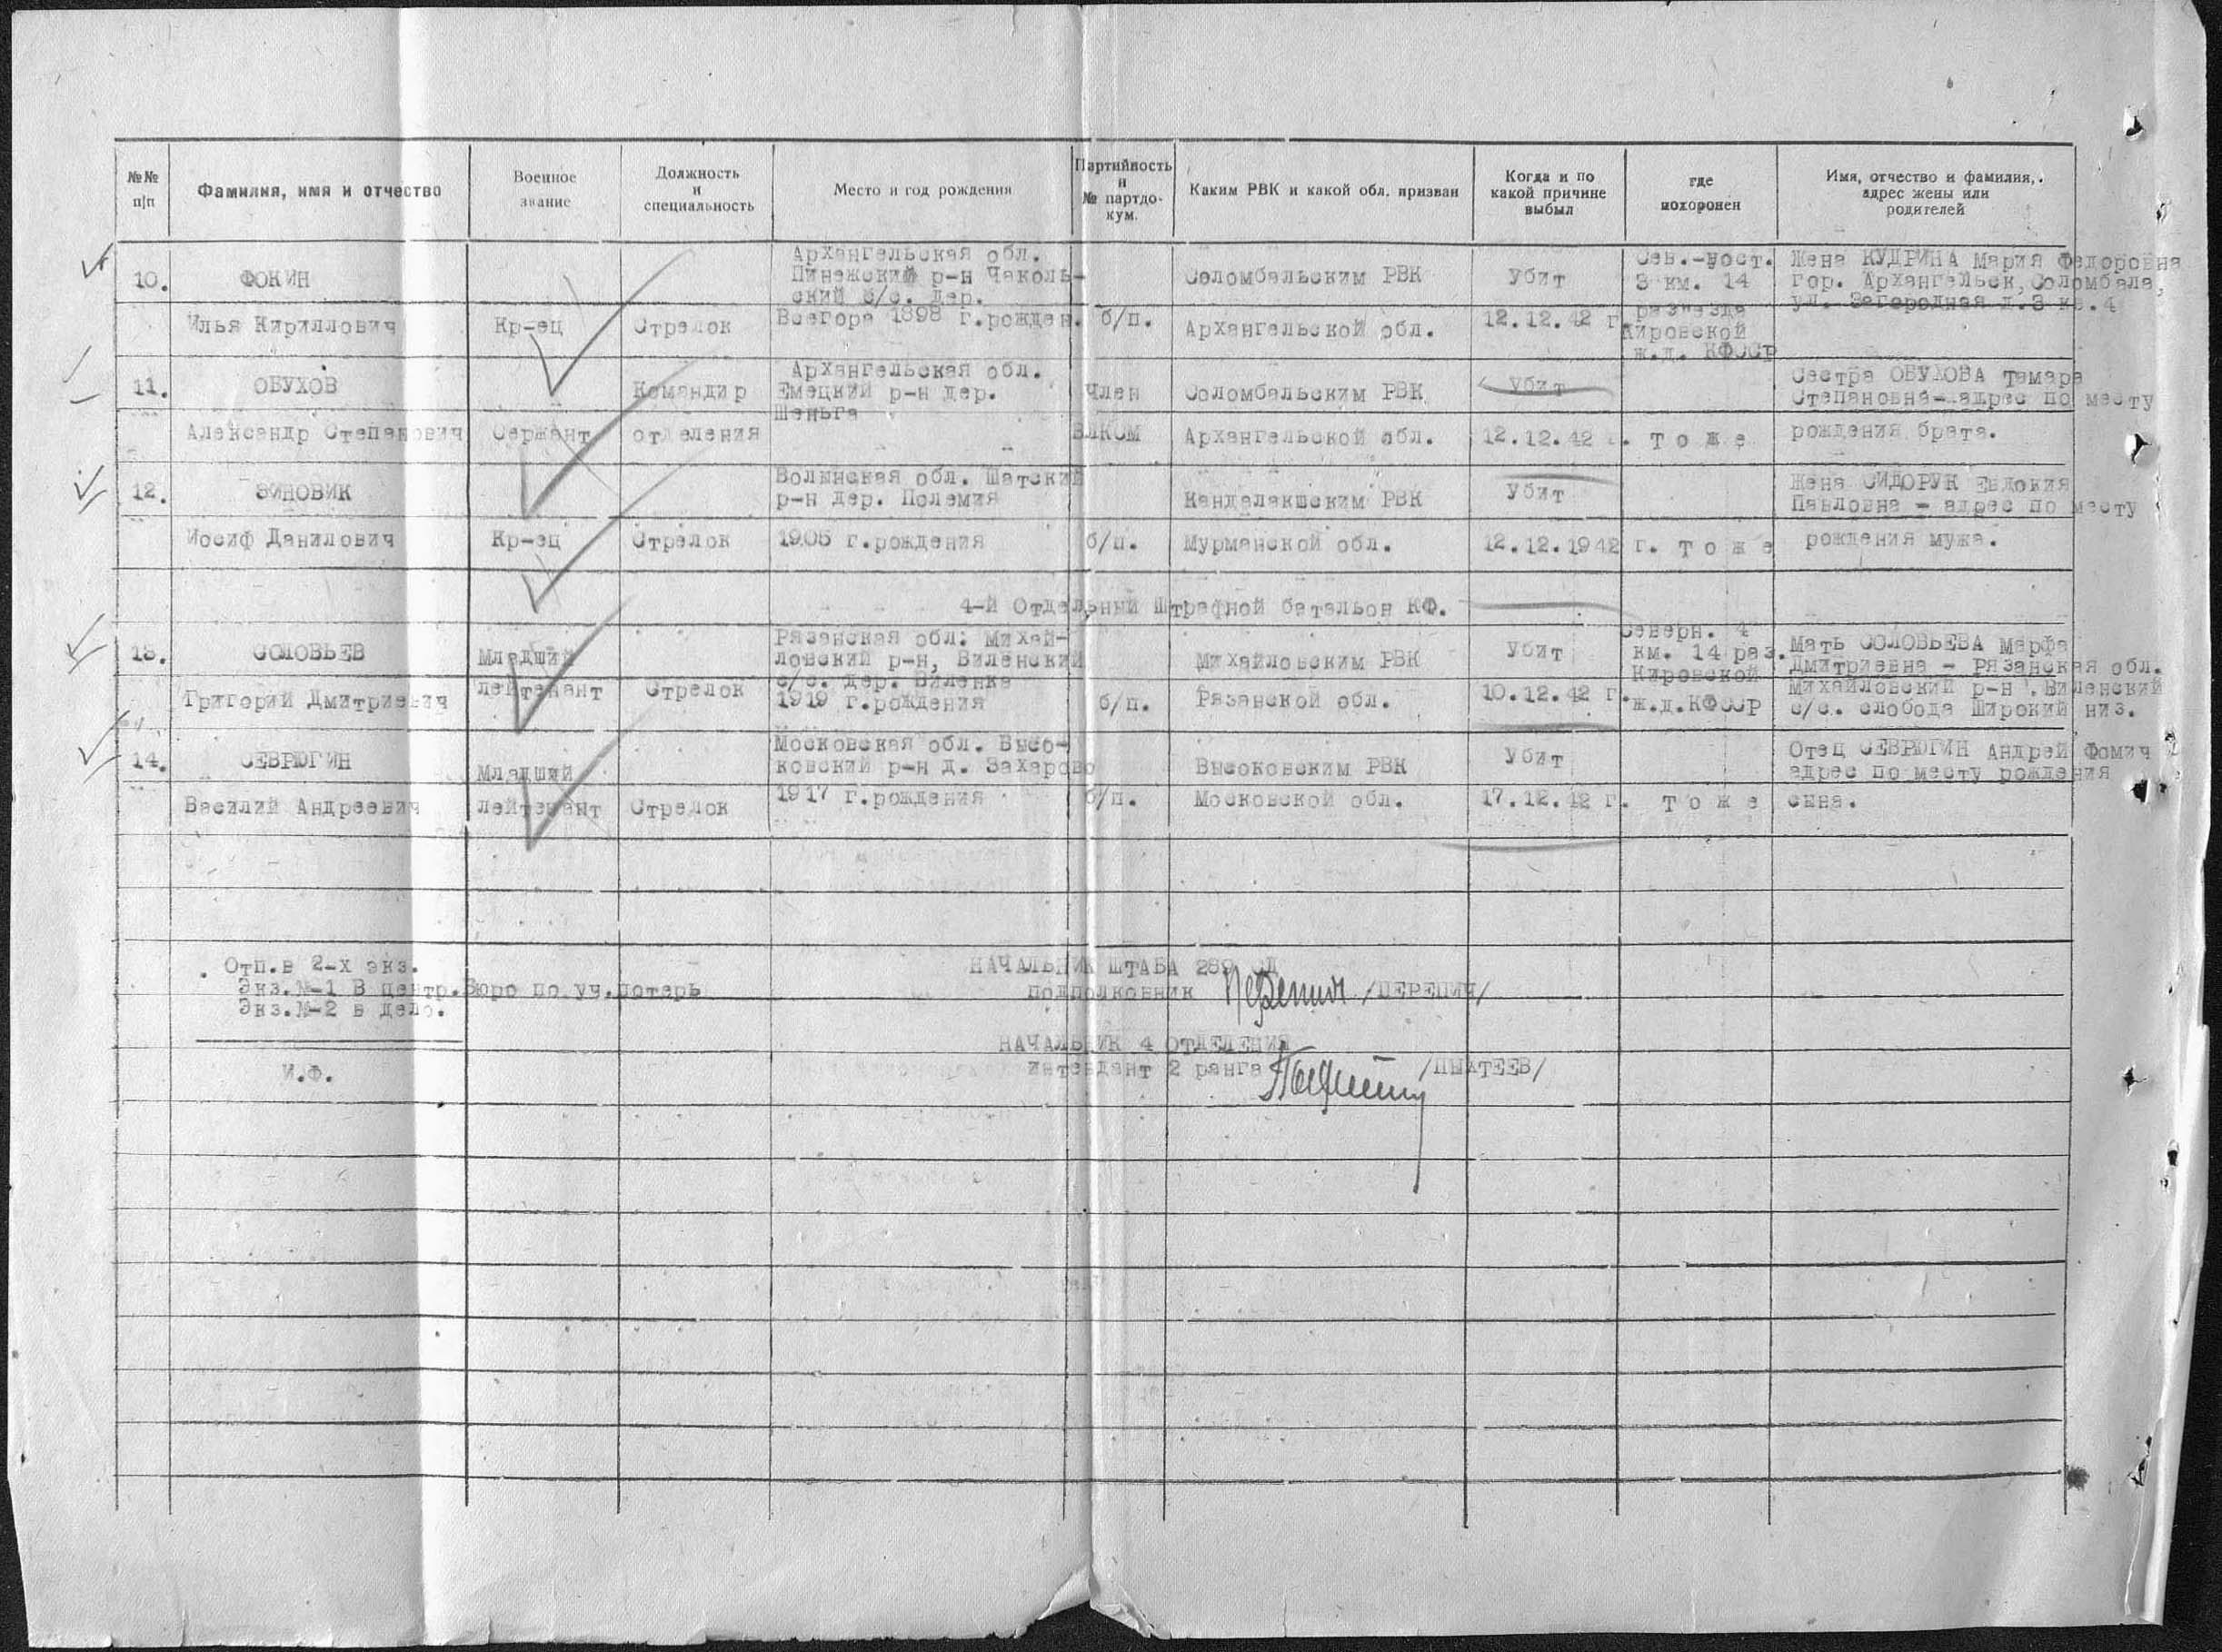 №№ п/п
Фамилия, имя и отчество
Военное звание
Должность и специальность
Место и год рождения
Партийность и № партдокум.
Каким РВК и какой обл. призван
Когда и по какой причине выбыл
где похоронен
Имя, отчество и фамилия, адрес жены или родителей
10.
ФОКИН
Илья Кириллович
Кр-ец
Стрелок
Архангельская обл.
Пинежский р-н Чаколь-
ский с/с. дер.
Воегора 1898 г.рожден.
б/п.
Соломбальским РВК
Архангельской обл.
Убит
12.12.42 г.
Сев.-вост.
3 км. 14
раз"езда
Кировской
ж.д. КФССР
Жена КУДРИНА Мария Федоровна
гор. Архангельск, Соломбала,
ул. Загородная д.3 кв.4
11.
ОБУХОВ
Александр Степанович
Сержант
Командир
отделения
Архангельская обл.
Емецкий р-н дер.
Шеньга
Член
ВЛКСМ
Соломбальским РВК
Архангельской обл.
Убит
12.12.42 г.
Т о ж е
Сестра ОБУХОВА Тамара
Степановна- адрес по месту
рождения брата.
12.
ЗИНОВИК
Иосиф Данилович
Кр-ец
Стрелок
Волынская обл. Шатский
р-н дер. Полемия
1905 г.рождения
б/п.
Кандалакшским РВК
Мурманской обл.
Убит
12.12.1942 г.
Т о ж е
Жена СИДОРУК Евдокия
Павловна - адрес по месту
рождения мужа.
4-й Отдельный Штрафной батальон КФ.
13.
СОЛОВЬЕВ
Григорий Дмитриевич
Младший
лейтенант
Стрелок
Рязанская обл. Михай-
ловский р-н, Виленский
с/с. дер. Виленка
1919 г.рождения
б/п.
Михайловским РВК
Рязанской обл.
Убит
10.12.42 г.
Северн. 4
км. 14 раз.
Кировской
ж.д.КФССР
Мать СОЛОВЬЕВА Марфа
Дмитриевна - Рязанская обл.
Михайловский р-н. Виленский
с/с. слобода Широкий низ.
14.
СЕВРЮГИН
Василий Андреевич
Младший
лейтенант
Стрелок
Московская обл. Высо-
ковский р-н д. Захарово
1917 г.рождения
б/п.
Высоковским РВК
Московской обл.
Убит
17.12.42 г.
Т о ж е
Отец СЕВРЮГИН Андрей Фомич
адрес по месту рождения
сына.
Отп.в 2-х экз.
Экз.№-1 в центр.Бюро по уч.потерь
Экз.№-2 в дело.
И.Ф.
НАЧАЛЬНИК ШТАБА 289 СД
подполковник /ПЕРЕПИЧ/
НАЧАЛЬНИК 4 ОТДЕЛЕНИЯ
интендант 2 ранга /ПЫХТЕЕВ/